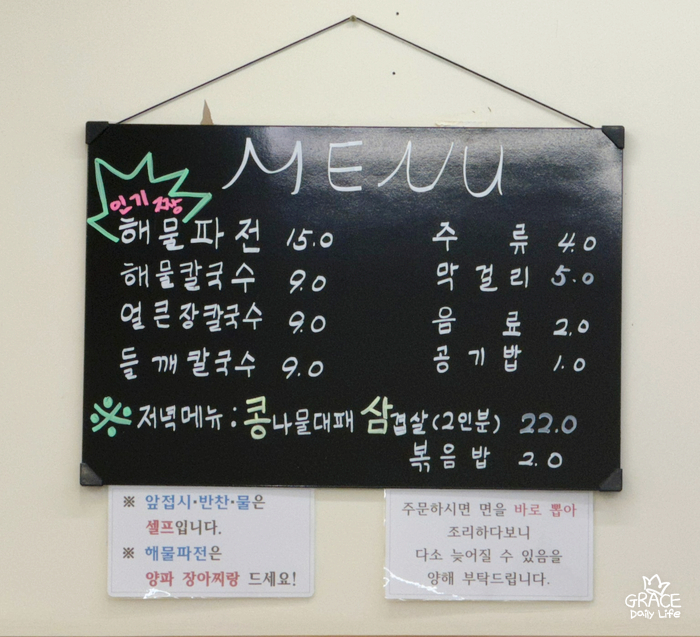 MENU
인기 짱
해물파전 15.0
해물칼국수 9.0
얼큰장칼국수 9.0
들깨칼국수 9.0
주류 4.0
막걸리 5.0
음료 2.0
공기밥 1.0
※ 저녁메뉴 : 콩나물대패 삼겹살(2인분) 22.0
볶음밥 2.0
※ 앞접시·반찬·물은
셀프입니다.
※ 해물파전은
양파 장아찌랑 드세요!
주문하시면 면을 바로 뽑아
조리하다보니
다소 늦어질 수 있음을
양해 부탁드립니다.
GRACE
Daily Life